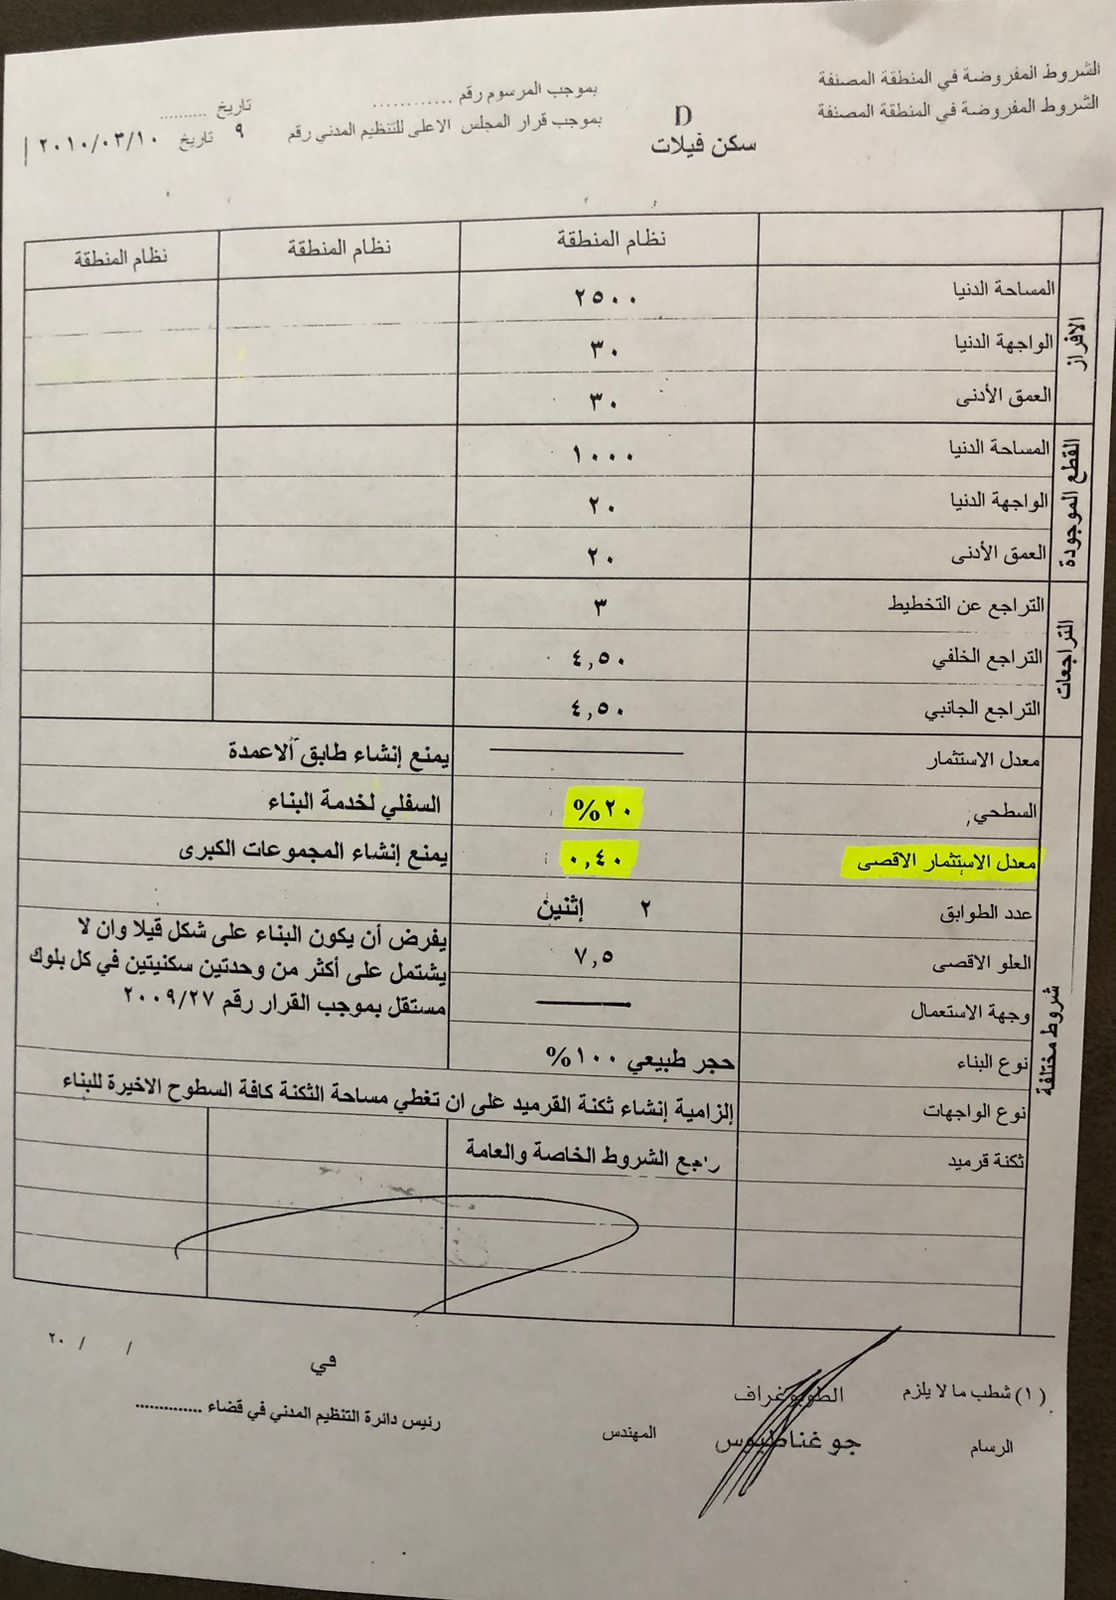 الشروط المفروضة في المنطقة المصنفة
الشروط المفروضة في المنطقة المصنفة
D
سكن فيلات
بموجب المرسوم رقم ............ تاريخ ..........
بموجب قرار المجلس الاعلى للتنظيم المدني رقم ٩ تاريخ ٢٠١٠/٠٣/١٠
نظام المنطقة نظام المنطقة نظام المنطقة
الافراز
المساحة الدنيا ٢٥٠٠
الواجهة الدنيا ٣٠
العمق الأدنى ٣٠
القطع الموجودة
المساحة الدنيا ١٠٠٠
الواجهة الدنيا ٢٠
العمق الأدنى ٢٠
التراجعات
التراجع عن التخطيط ٣
التراجع الخلفي ٤,٥٠
التراجع الجانبي ٤,٥٠
شروط مختلفة
معدل الاستثمار يمنع إنشاء طابق الاعمدة
السطحي ٢٠% السفلي لخدمة البناء
معدل الاستثمار الاقصى ٠,٤٠ يمنع إنشاء المجموعات الكبرى
عدد الطوابق ٢ إثنين
يفرض أن يكون البناء على شكل ڤيلا وان لا
العلو الاقصى ٧,٥ يشتمل على أكثر من وحدتين سكنيتين في كل بلوك
وجهة الاستعمال مستقل بموجب القرار رقم ٢٠٠٩/٢٧
نوع البناء حجر طبيعي ١٠٠%
نوع الواجهات إلزامية إنشاء ثكنة القرميد على ان تغطي مساحة الثكنة كافة السطوح الاخيرة للبناء
ثكنة قرميد راجع الشروط الخاصة والعامة
(١) شطب ما لا يلزم
الرسام
الطوبوغراف
جو غناطيوس
المهندس
في / / ٢٠
رئيس دائرة التنظيم المدني في قضاء ..............